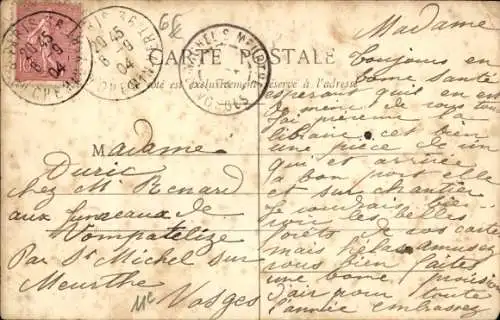 66
20 45
8 - 9
04
20 45
8 - 9
04
VOSGES
CARTE POSTALE
côté est exclusivement réservé à l'adresse
Madame
Duric
chez M Renard
aux fumeaux de
Vompatelize
Par St Michel sur
Meurthe
Vosges
Madame
Toujours en
bonne santé
esperant quil en est
de meme de vous tous
J'ai prevenu la
libraire cet bien
une piece de vin
qui et arrivée
a bon port elle
et sur chantier
Je voudrais bien
voir les belles
forêts de vos cartes
mais amuser
vous bien faites
une bonne provision
d'air pour toute
l'année embrassez